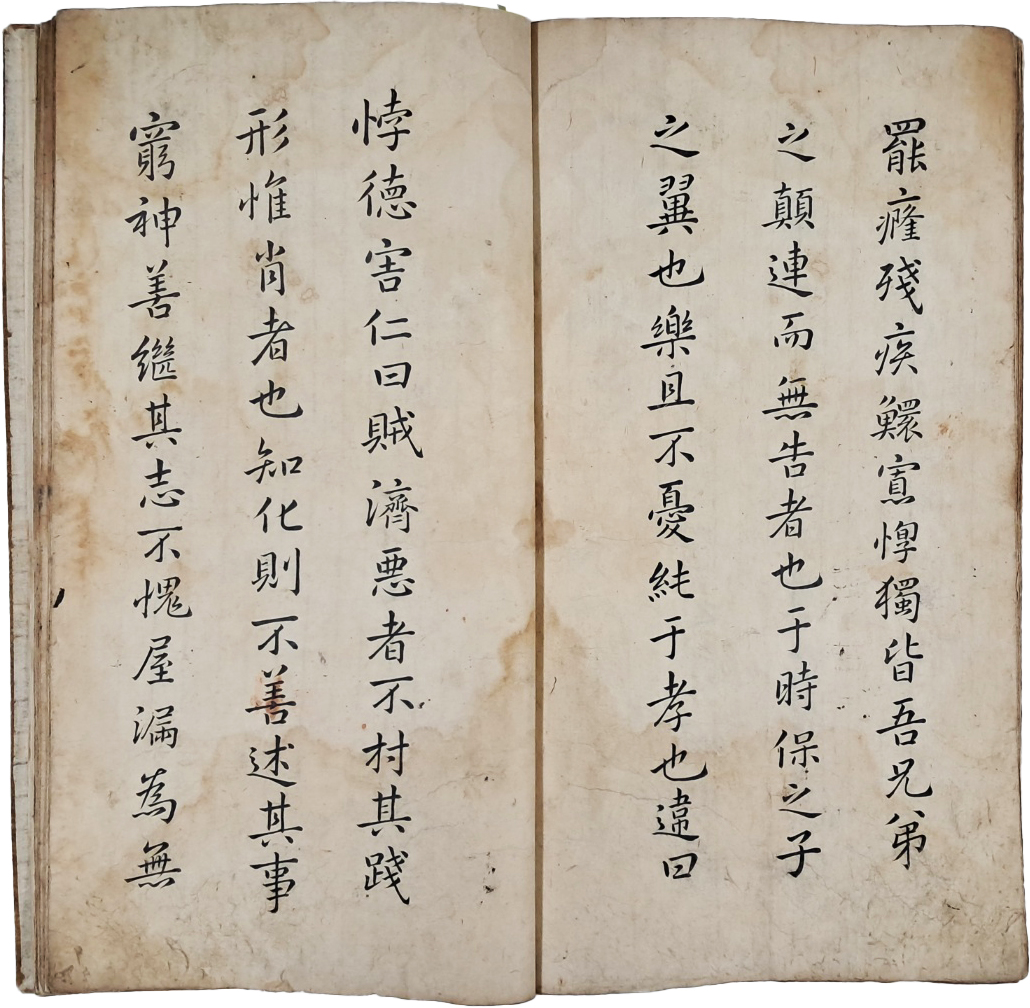 罷癃殘疾鰥寡惸獨皆吾兄弟
之顛連而無告者也于時保之子
之翼也樂且不憂純于孝也違曰
悖德害仁曰賊濟悪者不村其踐
形惟肖者也知化則不善述其事
窮神善継其志不愧屋漏為無